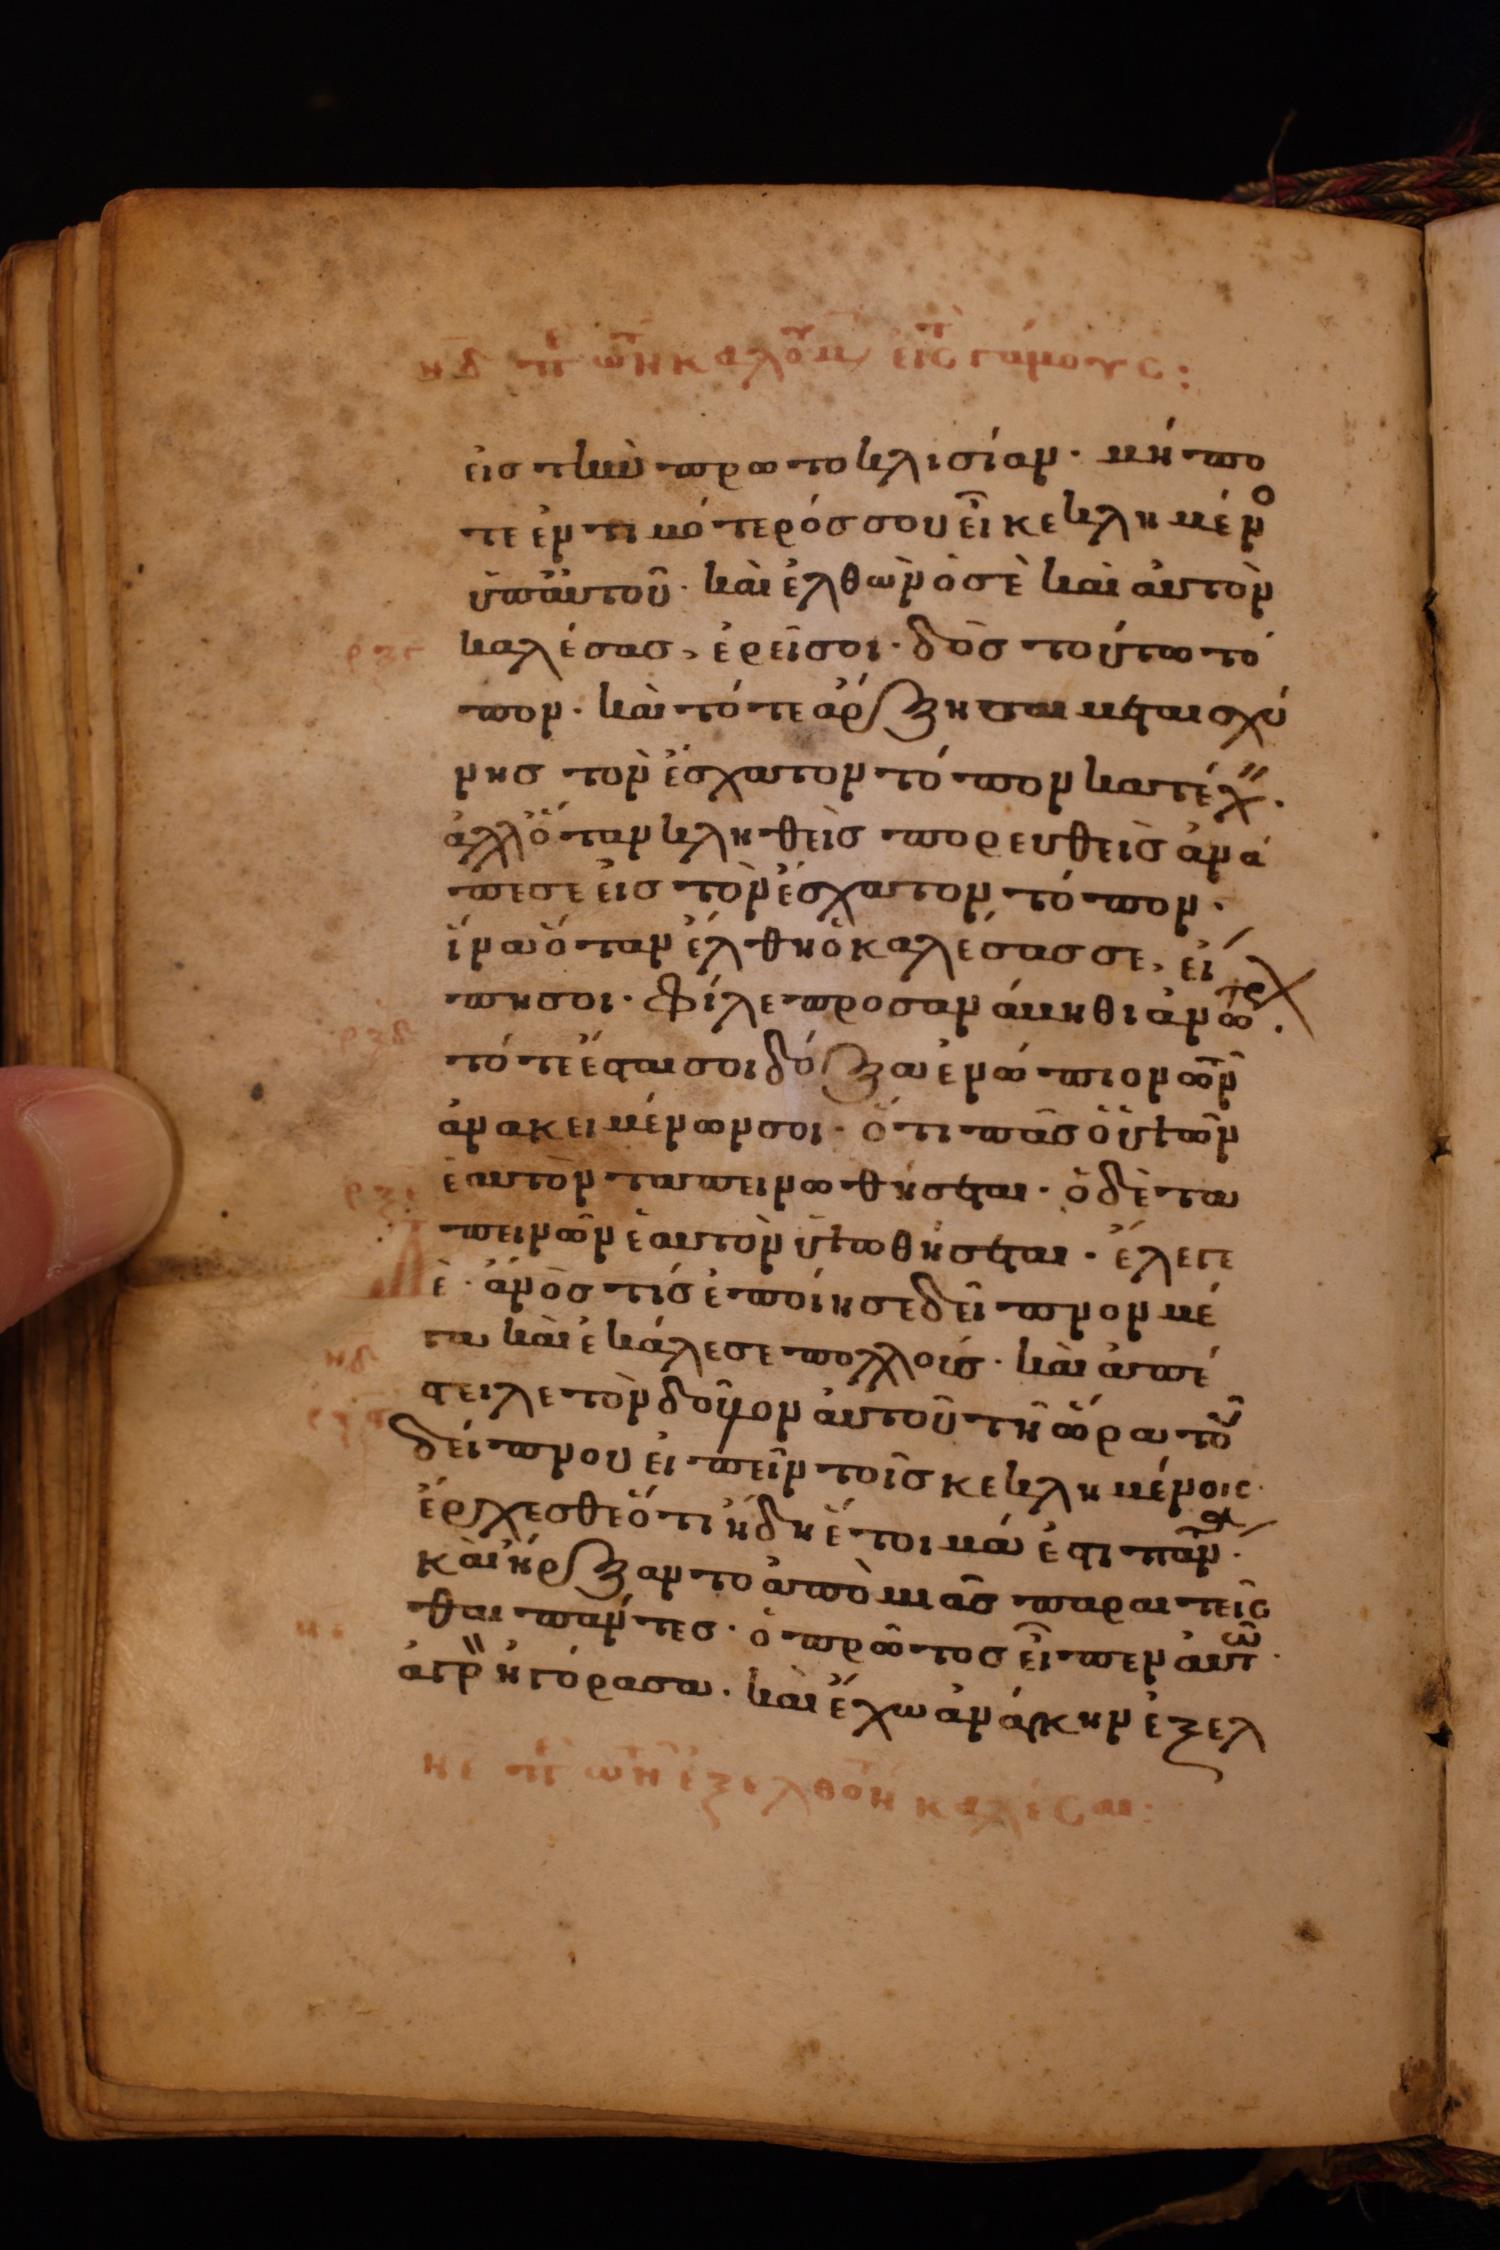 εἰς τὴν πρωτοκλισίαν· μήπο
τε ἐντιμότερός σου εἶ κεκλημένο
ὑπ' αὐτοῦ· καὶ ἐλθὼν ὁ σὲ καὶ αὐτὸν
καλέσας, ἐρεῖ σοι· δὸς τούτω τό
πον· καὶ τότε ἄρξη μεταισχύ
νης τὸν ἔσχατον τόπον κατέχ̃·
ἀλλ' ὅταν κληθεὶς πορευθεὶς ἀνά
πεσε εἰς τὸν ἔσχατον τόπον·
ἵνα ὅταν ἔλθη ὁ καλέσας σε, εἴ
πη σοι· φίλε προσανάβηθι ἀνωτρ·
τότε ἔσται σοι δόξα ἐνώπιον τῶν
ἀνακειμένων σοι· ὅτι πᾶς ὁ ὑψῶν
ἑαυτὸν ταπεινωθήσεται· ὁ δὲ τα
πεινῶν ἑαυτὸν ὑψωθήσεται· ἔλεγε
ἐ· ἄνος τίς ἐποίησε δεῖπνον μέ
γα καὶ ἐκάλεσε πολλούς· καὶ ἀπέ
στειλε τὸν δοῦλον αὐτοῦ τῆ ὥρα τοῦ
δείπνου εἰπεῖν τοῖς κεκλημένοις·
ἔρχεσθε ὅτι ἤδη ἕτοιμά ἐστι πάντ·
καὶ ἤρξαντο ἀπὸ μιᾶς παραιτεῖς
θαι πάντες· ὁ πρῶτος εἶπεν αὐτῶ·
ἀγρ ἠγόρασα· καὶ ἔχω ἀνάγκην ἐξελ